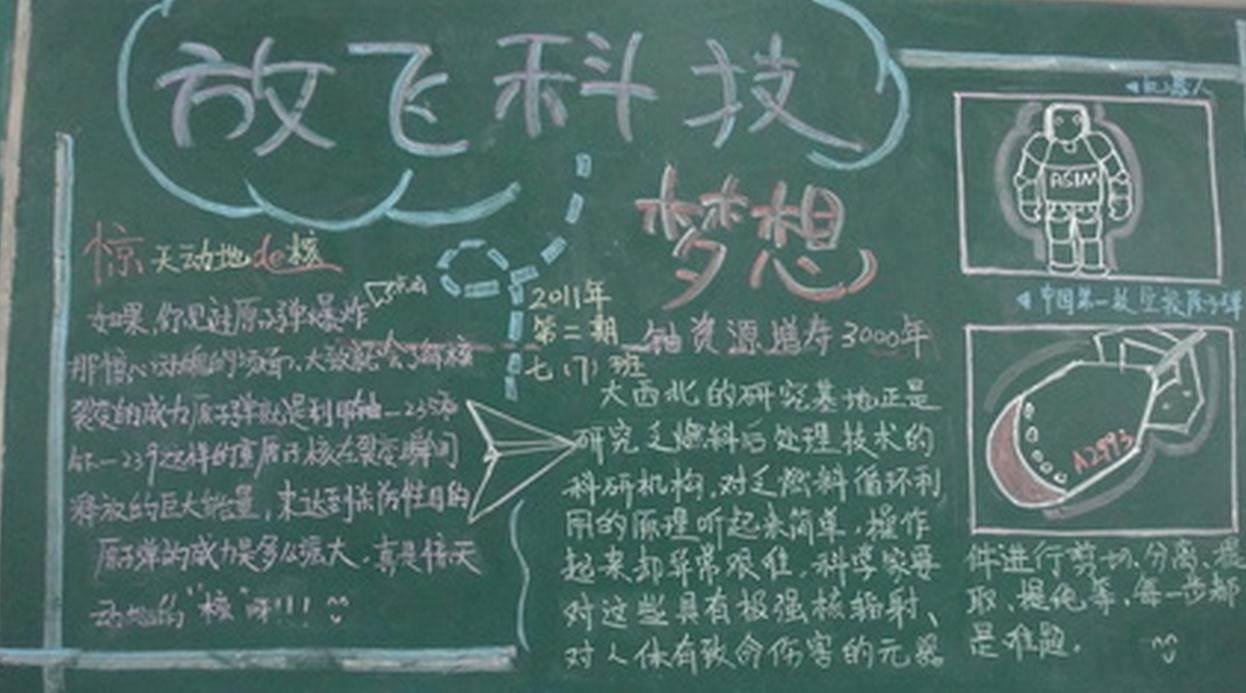 放飞科技
梦想
惊天动地de核
如果,你见过原子弹爆炸
那惊心动魄的场面,大致就会了解核
裂变的威力.原子弹就是利用铀—235和
钚—239这样的重原子核在裂变瞬间
释放的巨大能量,来达到杀伤性目的
原子弹的威力是多么强大.真是惊天
动地的"核"呀!!!
2011年
第二期
七(7)班
铀资源增寿3000年
大西北的研究基地正是
研究乏燃料后处理技术的
科研机构.对乏燃料循环利
用的原理听起来简单,操作
起来却异常艰难.科学家要
对这些具有极强核辐射、
对人体有致命伤害的元器
机器人
ASIM
中国第一枚空投原子弹
A2993
件进行剪切、分离、提
取、提纯等,每一步都
是难题.